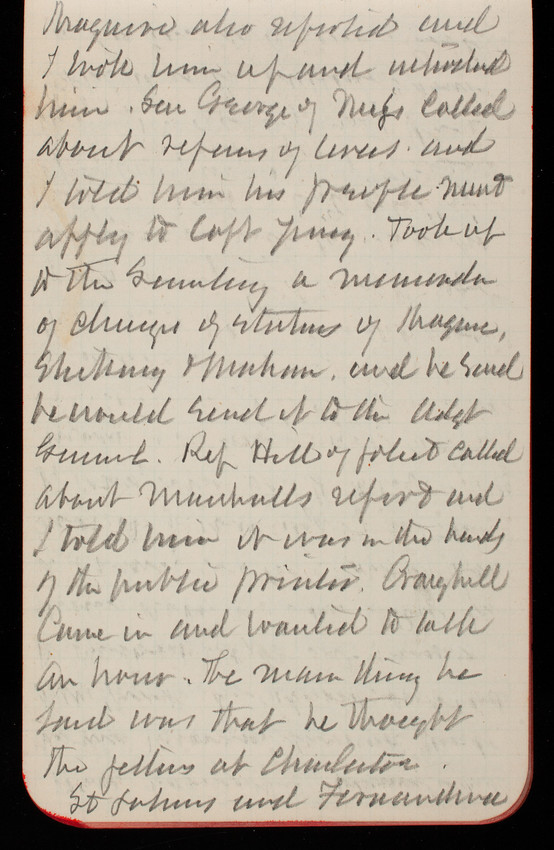 also reported and
I took him up and introduced
him. Gen George of Miss called
about repairs of levees and
I told him his people must
apply to Capt Young. Took up
to the Secretary a memoranda
of change of stations of
and he said
he would send it to the Adgt
General. Rep Hill of Joliet called
about Marshalls report and
I told him it was in the hands
of the public printer. Craighill
Came in and wanted to talk
an hour. The main thing he
said was that he thought
the jetties at Charleston.
St Johns and Fernandina